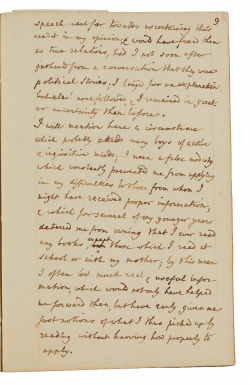 9
speech went far towards ascertaining their
credit in my opinion, & would have fixed them
as true relations, had I not soon after
gathered from a conversation that they were
political stories; I longed for an explanation
but alas! none followed, & I remained in greater
uncertainty than before.
I will mention here a circumstance
which probably attends many boys of active
& inquisitive minds. I mean a false modesty
which constantly prevented me from applying
in my difficulties to those from whom I
might have received proper information,
& which for several of my younger years
deterred me from owning that I ever read
any books except those which I read at
school or with my mother; by this means
I often lost much real & useful infor-
mation, which would not only have helped
me forward then, but have early given me
just notions of what I thus picked up by
reading without knowing how properly to
apply.